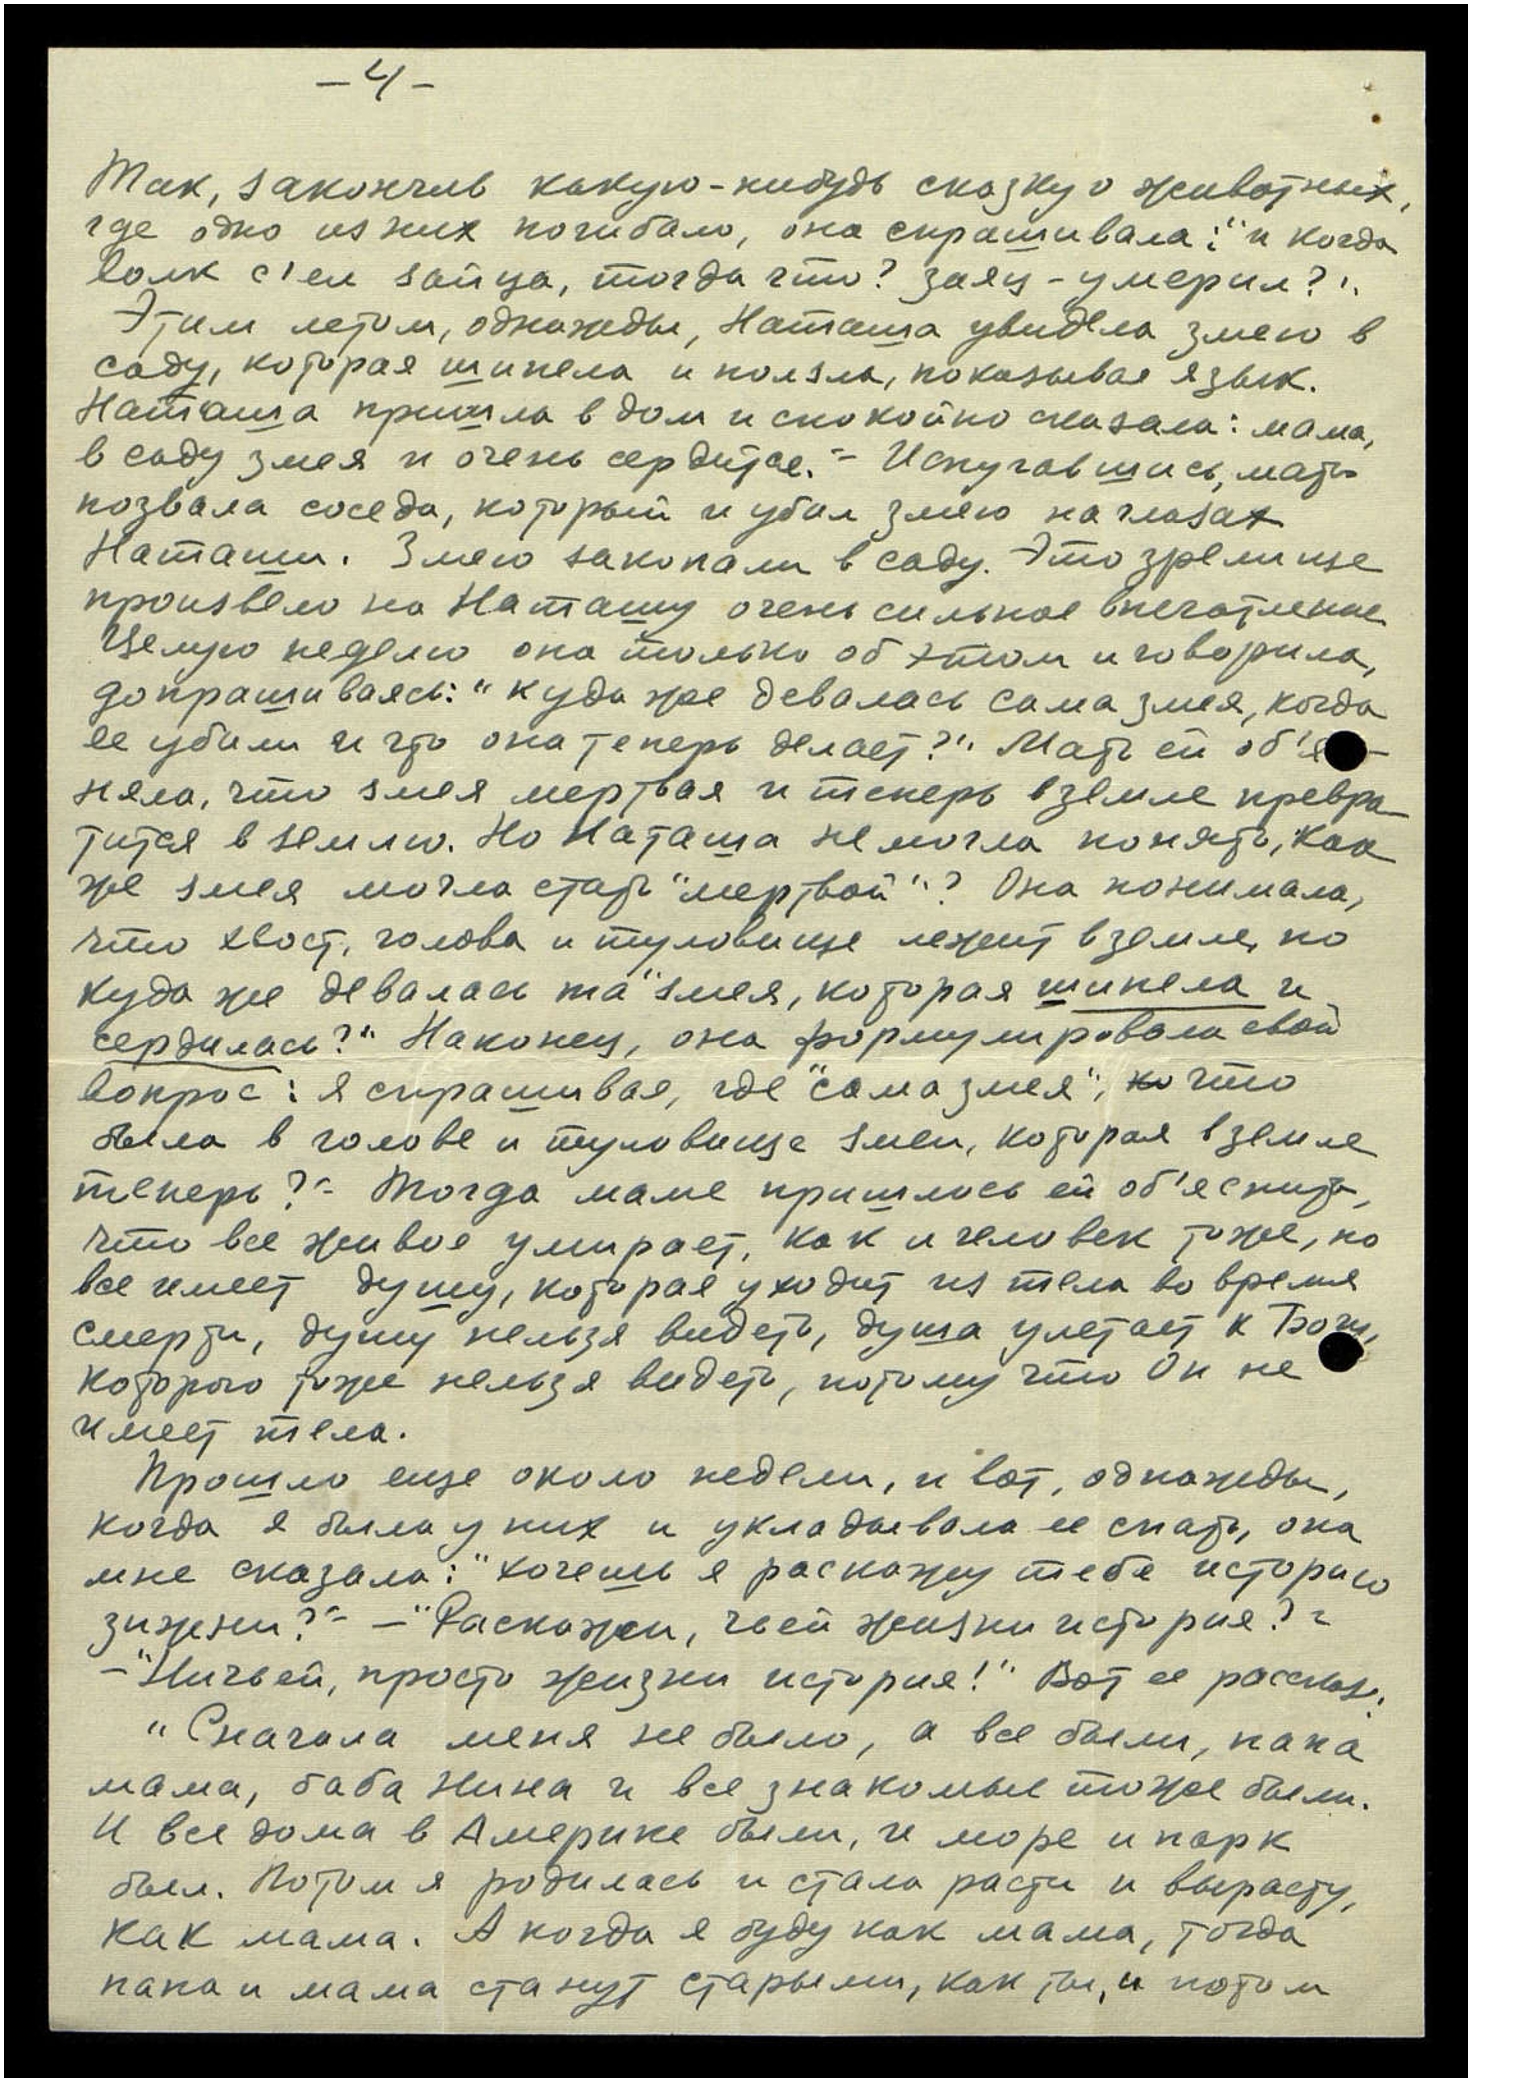 -4-
Так, закончив какую-нибудь сказку о животных,
где одно из них погибало, она спрашивала: "и когда
волк с'ел зайца, тогда что? заяц - умерил?".
Этим летом, однажды, Наташа увидела змею в
саду, которая шипела и ползла, показывая язык.
Наташа пришла в дом и спокойно сказала: мама,
в саду змея и очень сердится." Испугавшись, мать
позвала соседа, который и убил змею на глазах
Наташи. Змею закопали в саду. Это зрелище
произвело на Наташу очень сильное впечатление
Целую неделю она только об этом и говорила,
допрашиваясь: "куда же девалась сама змея, когда
ее убили и что она теперь делает?" Мать ей об'я-
няла, что змея мертвая и теперь в земле превра-
тится в землю. Но Наташа не могла понять, как
же змея могла стать "мертвой"? Она понимала,
что хвост, голова и туловище лежит в земле, но
куда же девалась та "змея, которая шипела и
сердилась?" Наконец, она формулировала свой
вопрос: я спрашивая, где "сама змея", что
была в голове и туловище змеи, которая в земле
теперь?" Тогда маме пришлось ей об'яснить,
что все живое умирает, как и человек тоже, но
все имеет душу, которая уходит из тела во время
смерти, душу нельзя видеть, душа улетает к Богу,
которого тоже нельзя видеть, потому что Он не
имеет тела.
Прошло еще около недели, и вот, однажды,
когда я была у них и укладывала ее спать, она
мне сказала: "хочешь я раскажу тебе историю
зижни?" - "Раскажи, чьей жизни история?"
- "Ничьей, просто жизни история!" Вот ее рассказ:
"Сначала меня не было, а все были, папа
мама, баба Нина и все знакомые тоже были.
И все дома в Америке были, и море и парк
был. Потом я родилась и стала расти и вырасту,
как мама. А когда я буду как мама, тогда
папа и мама станут старыми, как ты, и потом